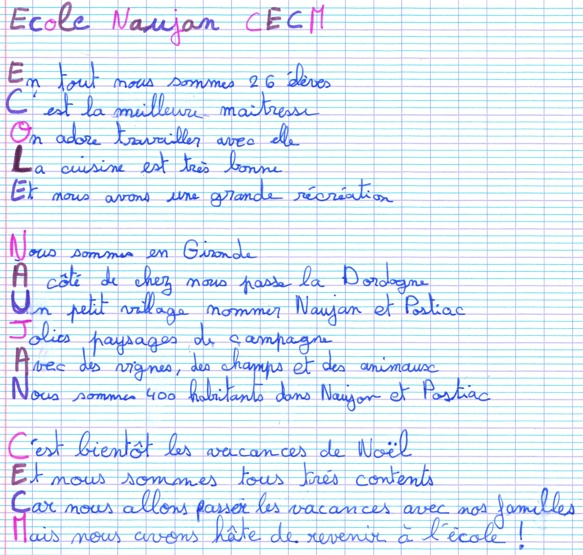 Ecole Naujan CECM
En tout nous sommes 26 élèves
C'est la meilleure maitresse
On adore travailler avec elle
La cuisine est très bonne
Et nous avons une grande récréation
Nous sommes en Gironde
A côté de chez nous passe la Dordogne
Un petit village nommer Naujan et Postiac
Jolies paysages de campagne
Avec des vignes, des champs et des animaux
Nous sommes 400 habitants dans Naujan et Postiac
C'est bientôt les vacances de Noël
Et nous sommes tous très contents
Car nous allons passer les vacances avec nos familles
Mais nous avons hâte de revenir à l'école !